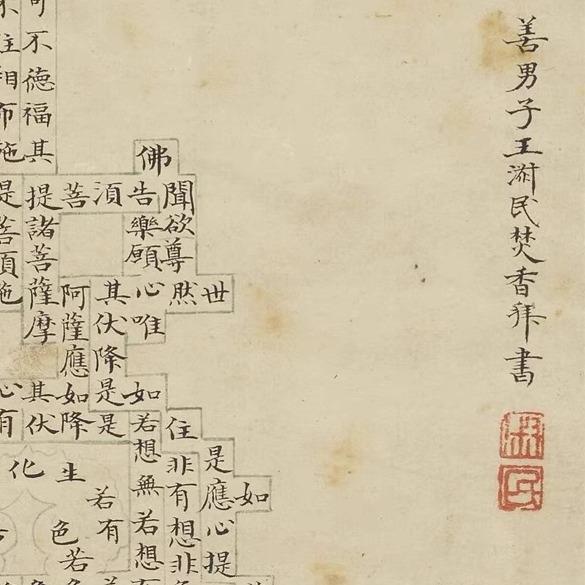 善男子王民焚香拜書
如
世
是應心提
聞欲尊然
住非有想非
佛告樂願心唯
如若想無若想
湏
其伏降是是
若有
菩
阿薩應如降
生
色若
不德福其提諸菩薩摩
其伏
化
住相布施
是菩湏施
心有